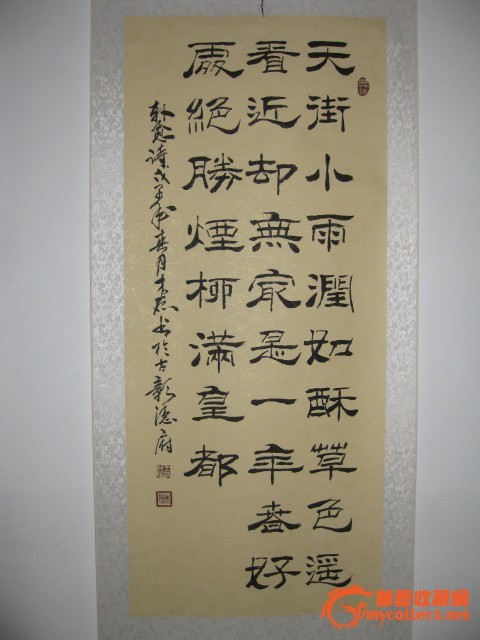 天街小雨潤如酥草色遥
看近却無最是一年春好
處絶勝煙柳滿皇都
韩愈诗戊子年春月未君书於古彰德府
華夏收藏網
mycollect.net